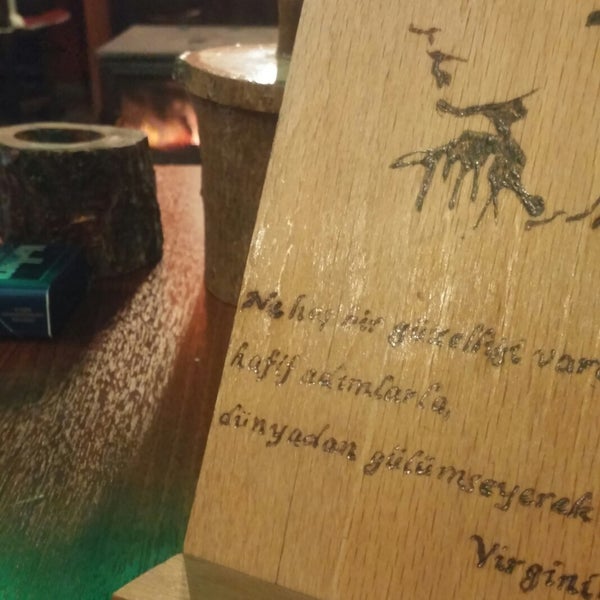 Ne hoş bir güzelliği var
hafif adımlarla,
dünyadan gülümseyerek
Virgini